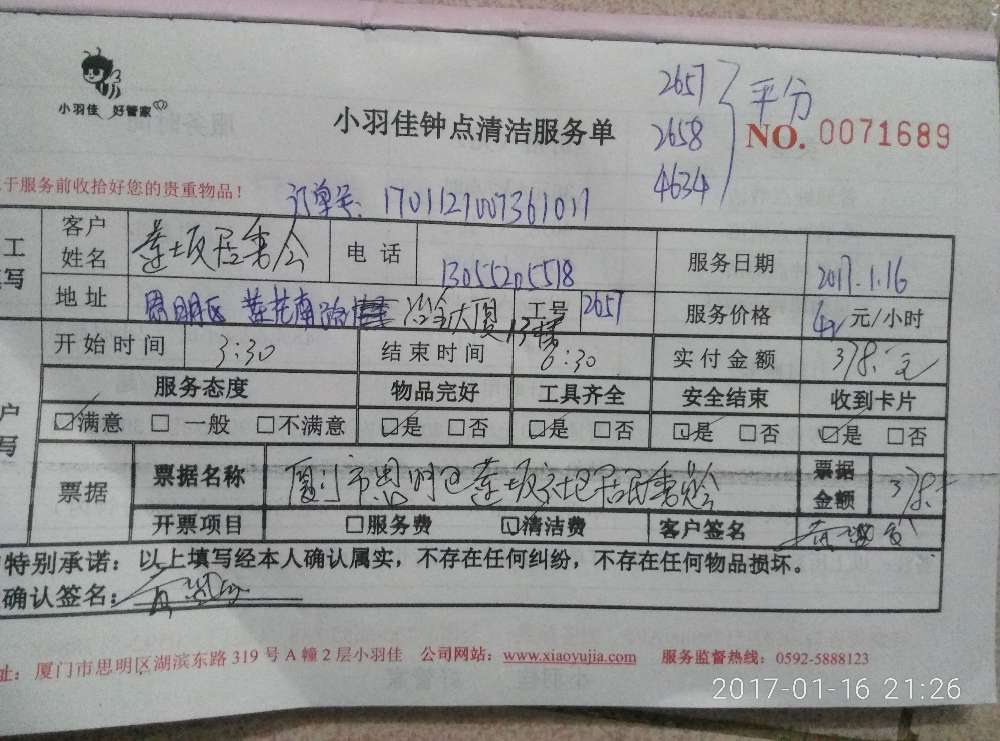 小羽佳 好管家
2657
2658
4634
平分
小羽佳钟点清洁服务单
NO. 0071689
于服务前收拾好您的贵重物品！
订单号: 1701121007361011
工
写
客户姓名 莲坂居委会 电话 13055205518 服务日期 2017.1.16
地址 思明区 莲花南路 冶金大厦13楼 工号 2657 服务价格 42 元/小时
开始时间 3:30 结束时间 6:30 实付金额 378.元
户
写
服务态度 物品完好 工具齐全 安全结束 收到卡片
☑满意 □一般 □不满意 ☑是 □否 ☑是 □否 ☑是 □否 ☑是 □否
票据 票据名称 厦门市思明区莲坂社区居民委员会 票据金额 378
开票项目 □服务费 ☑清洁费 客户签名
特别承诺：以上填写经本人确认属实，不存在任何纠纷，不存在任何物品损坏。
确认签名：
址：厦门市思明区湖滨东路 319 号 A 幢 2 层小羽佳 公司网站：www.xiaoyujia.com 服务监督热线：0592-5888123
2017-01-16 21:26